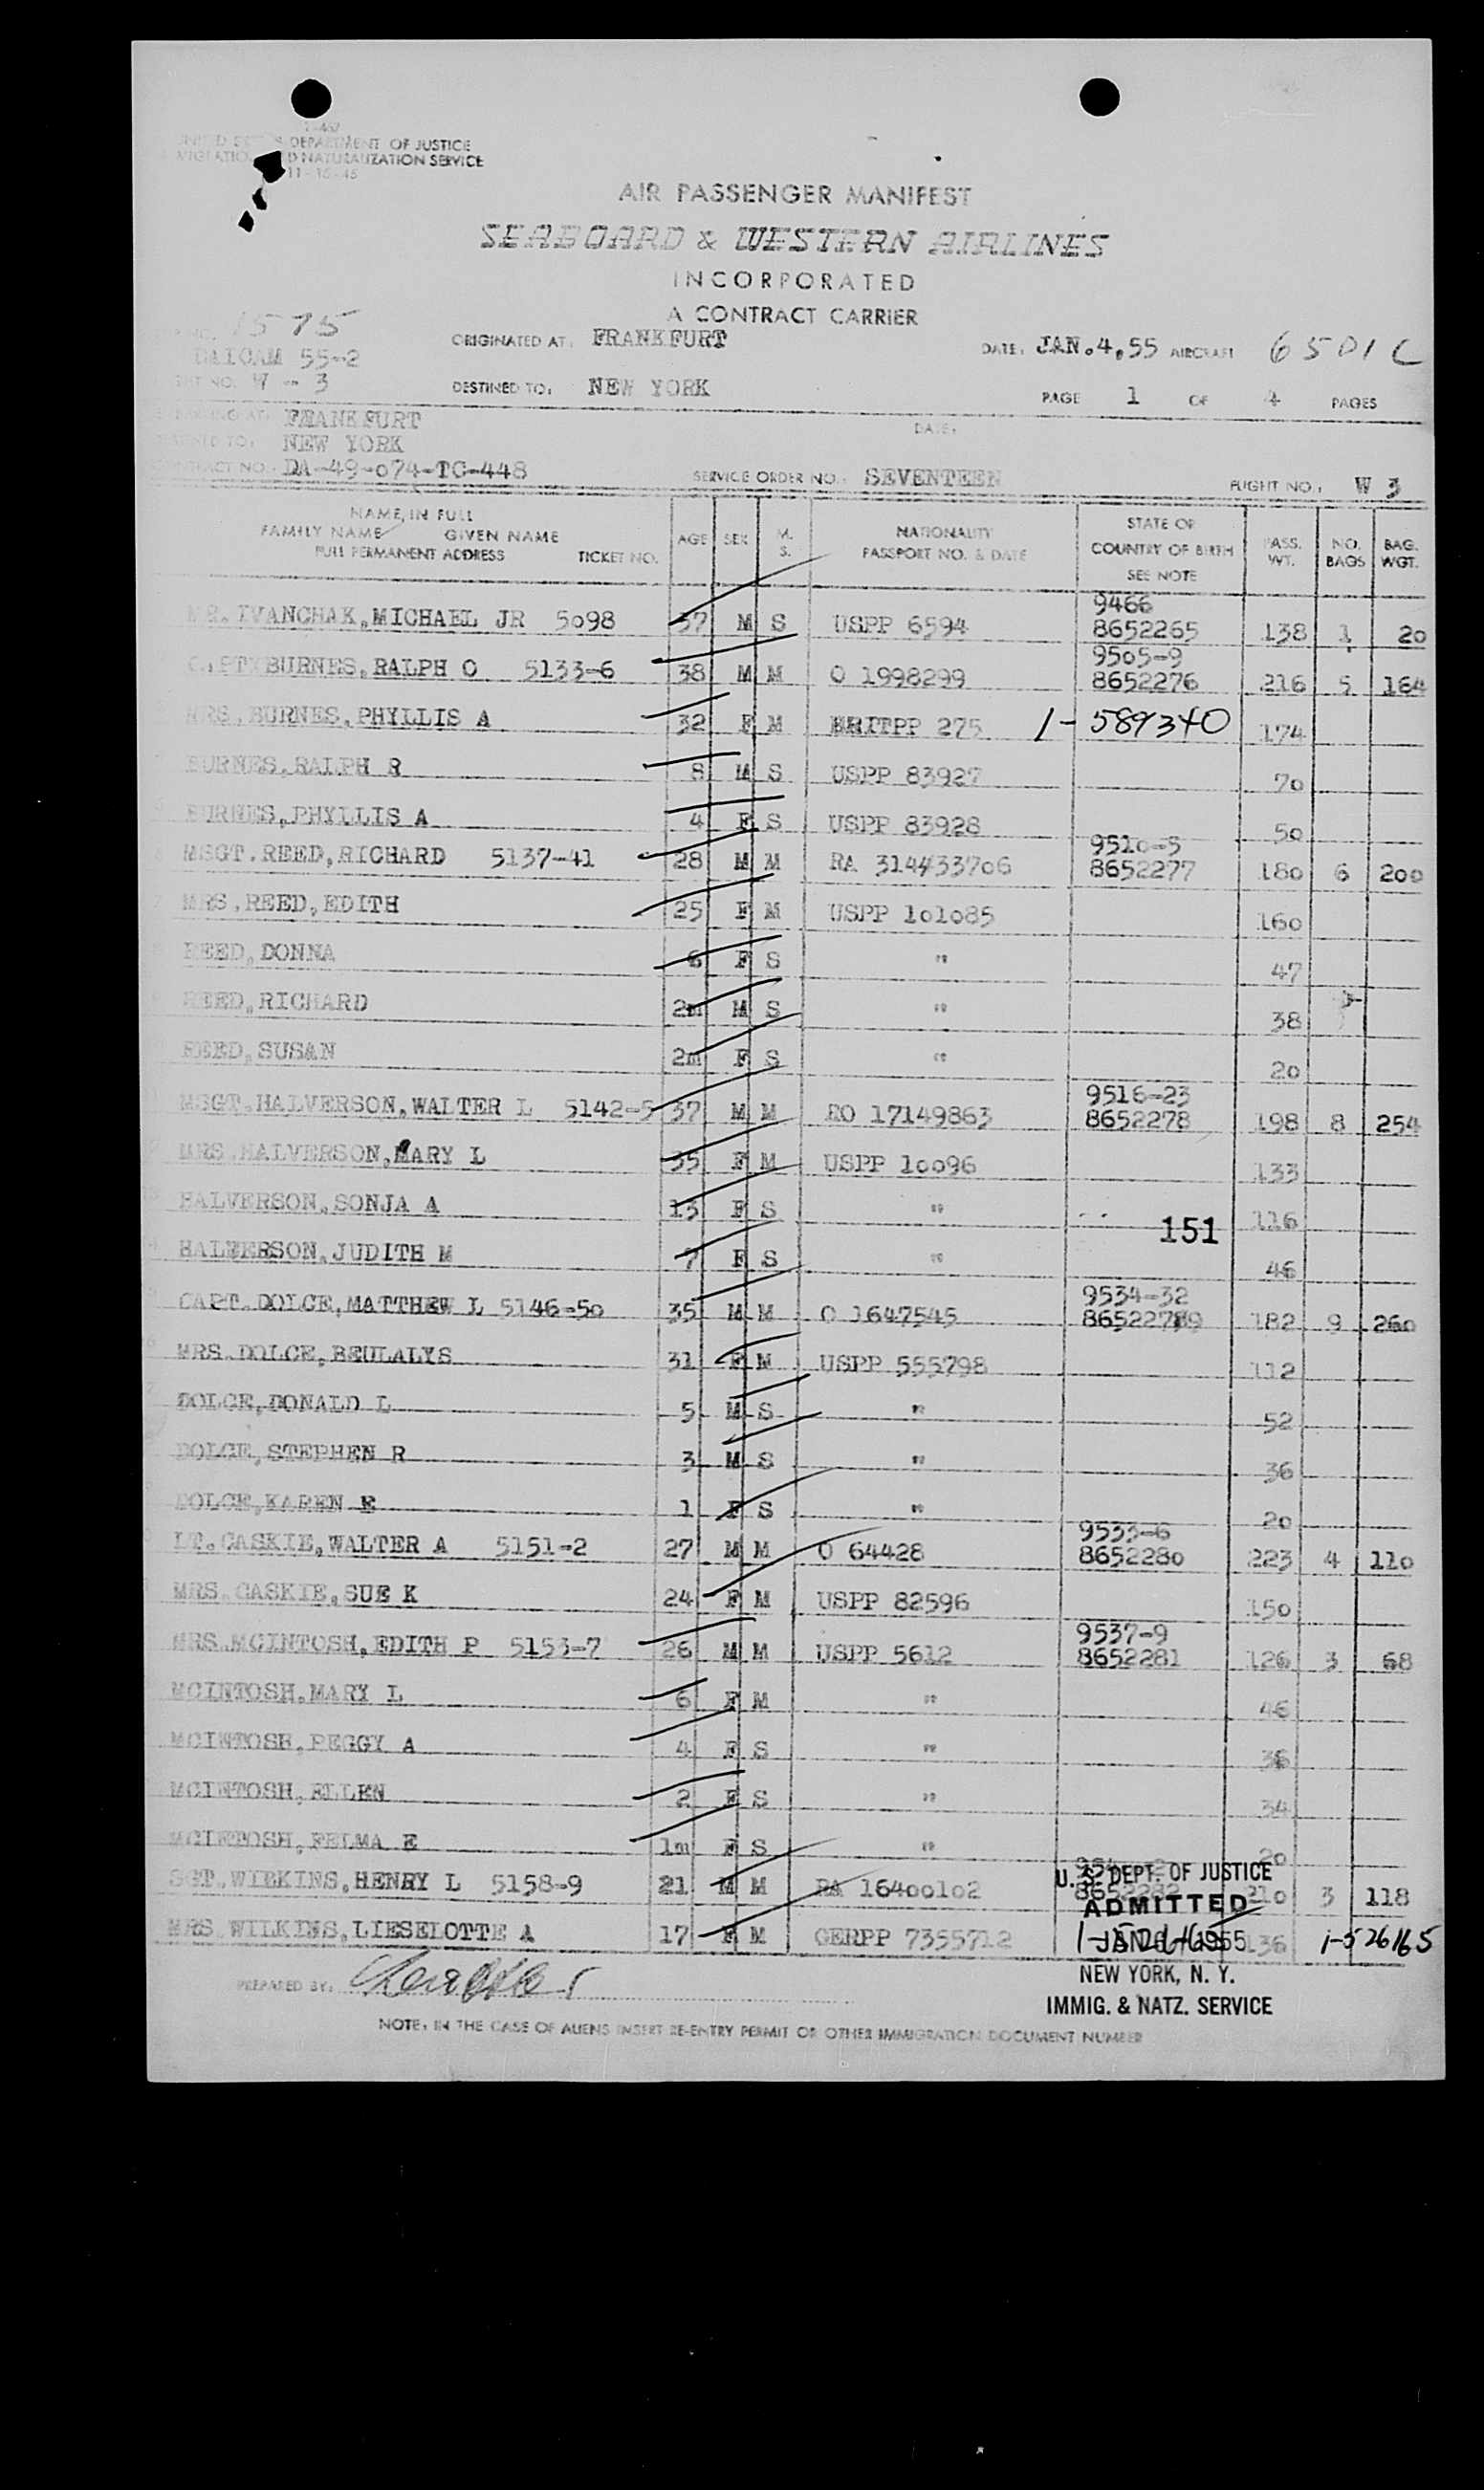 I-467
UNITED STATES DEPARTMENT OF JUSTICE
IMMIGRATION AND NATURALIZATION SERVICE
11-15-45
AIR PASSENGER MANIFEST
SEABOARD & WESTERN AIRLINES
INCORPORATED
A CONTRACT CARRIER
NO. 1575 ORIGINATED AT: FRANKFURT DATE: JAN.4,55 AIRCRAFT 6501C
DAICAM 55-2
NO. W - 3 DESTINED TO: NEW YORK PAGE 1 OF 4 PAGES
AT: FRANKFURT DATE:
TO: NEW YORK
CONTRACT NO. DA-49-074-TC-448 SERVICE ORDER NO.: SEVENTEEN FLIGHT NO: W 3
NAME, IN FULL
FAMILY NAME GIVEN NAME
FULL PERMANENT ADDRESS TICKET NO. AGE SEX M. S. NATIONALITY PASSPORT NO. & DATE STATE OR COUNTRY OF BIRTH SEE NOTE PASS. WT. NO. BAGS BAG. WGT.
MR. IVANCHAK, MICHAEL JR 5098 37 M S USPP 6594 9466 8652265 138 1 20
CAPT BURNES, RALPH O 5133-6 38 M M O 1998299 9505-9 8652276 216 5 164
MRS. BURNES, PHYLLIS A 32 F M BRITPP 275 1-589340 174
BURNES, RALPH R 8 M S USPP 83927 70
BURNES, PHYLLIS A 4 F S USPP 83928 50
MSGT. REED, RICHARD 5137-41 28 M M RA 314433706 9510-5 8652277 180 6 200
MRS. REED, EDITH 25 F M USPP 101085 160
REED, DONNA 6 F S " 47
REED, RICHARD 2m M S " 38
REED, SUSAN 2m F S " 20
MSGT. HALVERSON, WALTER L 5142-5 37 M M RO 17149863 9516-23 8652278 198 8 254
MRS. HALVERSON, MARY L 35 F M USPP 10096 133
HALVERSON, SONJA A 13 F S " 116
151
HALVERSON, JUDITH M 7 F S " 46
CAPT. DOLCE, MATTHEW L 5146-50 35 M M O 1647545 9534-32 8652279 182 9 260
MRS. DOLCE, BEULALYS 31 F M USPP 555798 112
DOLCE, DONALD L 5 M S " 52
DOLCE, STEPHEN R 3 M S " 36
DOLCE, KAREN E 1 F S " 20
LT. CASKIE, WALTER A 5151-2 27 M M O 64428 9533-6 8652280 223 4 110
MRS. CASKIE, SUE K 24 F M USPP 82596 150
MRS. MCINTOSH, EDITH P 5153-7 26 M M USPP 5612 9537-9 8652281 126 3 68
MCINTOSH, MARY L 6 F M " 46
MCINTOSH, PEGGY A 4 F S " 36
MCINTOSH, ELLEN 2 F S " 34
MCINTOSH, FELMA E 1m F S " 20
SGT. WILKINS, HENRY L 5158-9 21 M M RA 16400102 8652282 210 3 118
MRS. WILKINS, LIESELOTTE A 17 F M GERPP 7355712 136 1-526165
U. S. DEPT. OF JUSTICE
ADMITTED
JAN 1955
NEW YORK, N. Y.
IMMIG. & NATZ. SERVICE
PREPARED BY:
NOTE: IN THE CASE OF ALIENS INSERT RE-ENTRY PERMIT OR OTHER IMMIGRATION DOCUMENT NUMBER